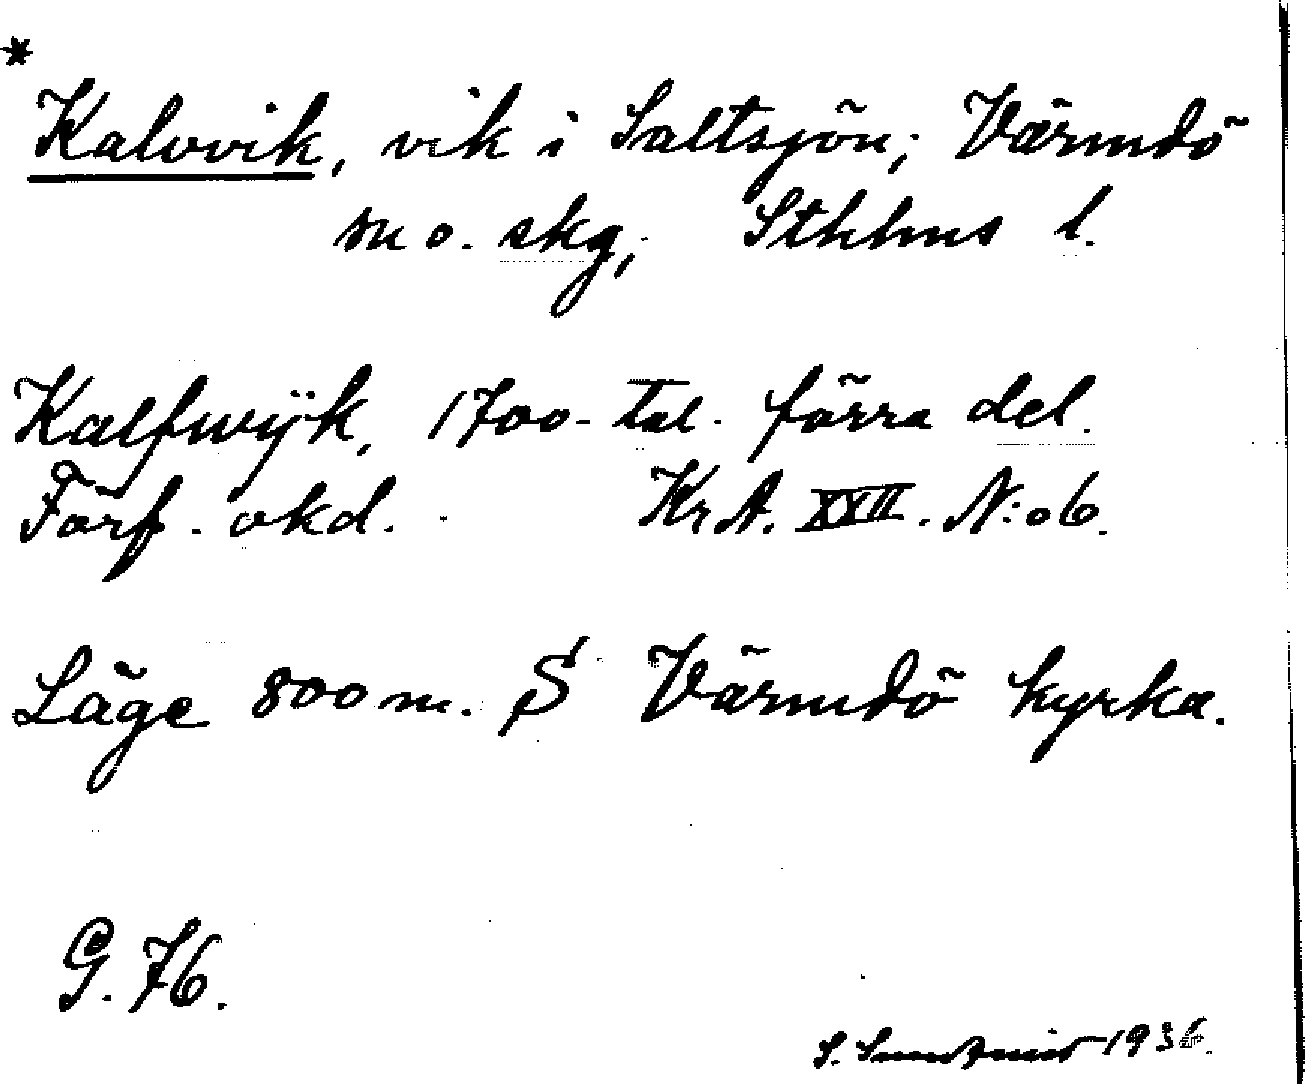 *
Kalvvik, vik i Saltsjön; Värmdö
sn o. skg; Sthlms l.
Kalfwijk, 1700-tal. förra del.
Förf. okd. KrA. XXII. N:o 6.
Läge 800 m. S Värmdö kyrka.
G. 76.
S. 1936.